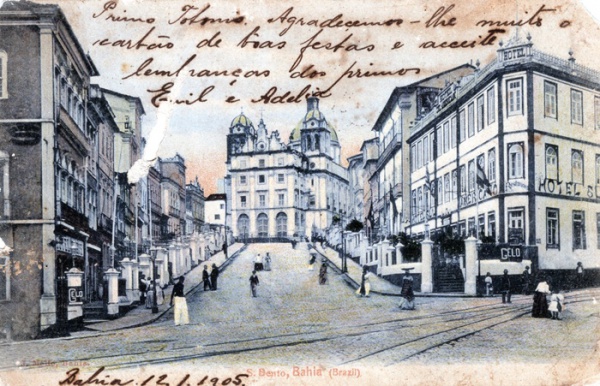 Primo Totonio. Agradecemos-lhe muito o
cartão de boas festas e acceite
lembranças dos primos
Emil e Adelia
HOTEL
HOTEL S
GELO
GELO
S. Bento, Bahia (Brazil).
Bahia 12.1.1905.